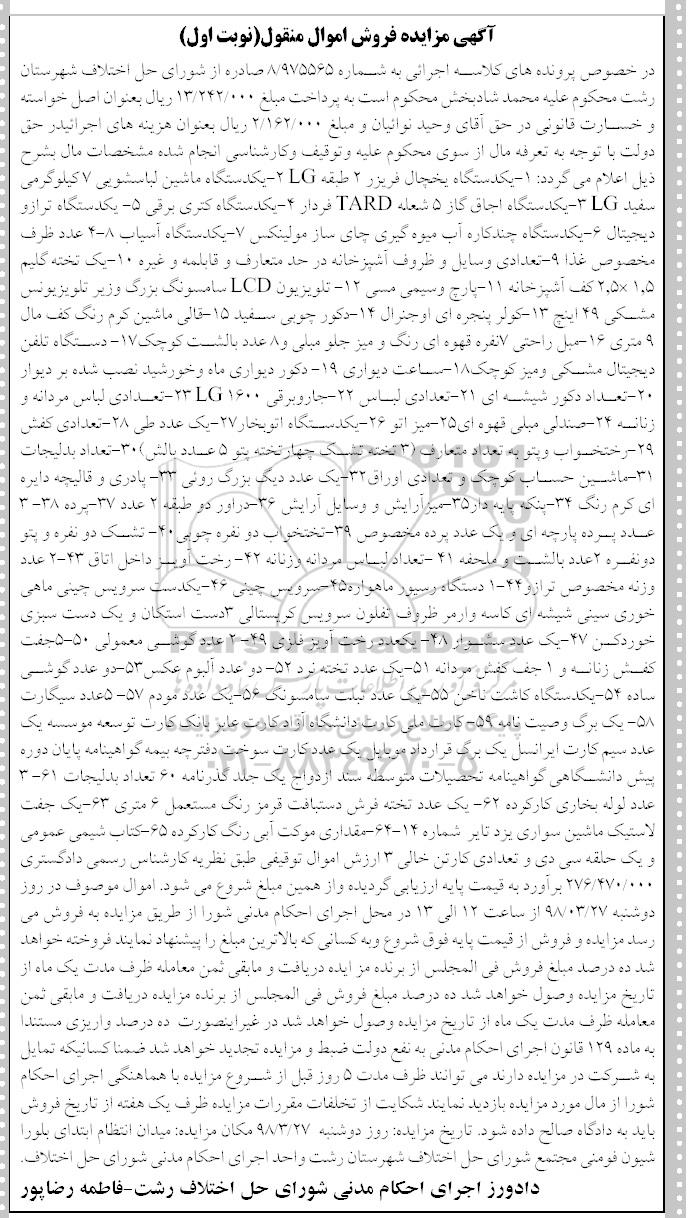 آگهی مزایده فروش اموال منقول(نوبت اول)
در خصوص پرونده های کلاسه اجرائی به شماره ۸/۹۷۵۵۶۵ صادره از شورای حل اختلاف شهرستان
رشت محکوم علیه محمد شادبخش محکوم است به پرداخت مبلغ ۱۳/۲۴۲/۰۰۰ ریال بعنوان اصل خواسته
و خسارت قانونی در حق آقای وحید نوائیان و مبلغ ۲/۱۶۲/۰۰۰ ریال بعنوان هزینه های اجرائیدر حق
دولت با توجه به تعرفه مال از سوی محکوم علیه وتوقیف وکارشناسی انجام شده مشخصات مال بشرح
ذیل اعلام می گردد: ۱-یکدستگاه یخچال فریزر ۲ طبقه LG ۲-یکدستگاه ماشین لباسشویی ۷کیلوگرمی
سفید LG ۳-یکدستگاه اجاق گاز ۵ شعله TARD فردار ۴-یکدستگاه کتری برقی ۵- یکدستگاه ترازو
دیجیتال ۶-یکدستگاه چندکاره آب میوه گیری چای ساز مولینکس ۷-یکدستگاه آسیاب ۸-۴ عدد ظرف
مخصوص غذا ۹-تعدادی وسایل و ظروف آشپزخانه در حد متعارف و قابلمه و غیره ۱۰-یک تخته گلیم
۱٫۵ ×۲٫۵ کف آشپزخانه ۱۱-پارچ وسیمی مسی ۱۲- تلویزیون LCD سامسونگ بزرگ وزیر تلویزیونس
مشکی ۴۹ اینچ ۱۳-کولر پنجره ای اوجنرال ۱۴-دکور چوبی سفید ۱۵-قالی ماشین کرم رنگ کف مال
۹ متری ۱۶-مبل راحتی ۷نفره قهوه ای رنگ و میز جلو مبلی و۸ عدد بالشت کوچک۱۷- دستگاه تلفن
دیجیتال مشکی ومیز کوچک۱۸-ساعت دیواری ۱۹- دکور دیواری ماه وخورشید نصب شده بر دیوار
۲۰-تعداد دکور شیشه ای ۲۱-تعدادی لباس ۲۲-جاروبرقی LG ۱۶۰۰ ۲۳-تعدادی لباس مردانه و
زنانه ۲۴-صندلی مبلی قهوه ای۲۵-میز اتو ۲۶-یکدستگاه اتوبخار۲۷-یک عدد طی ۲۸-تعدادی کفش
۲۹-رختخواب وپتو به تعداد متعارف (۳ تخته تشک چهارتخته پتو ۵ عدد بالش)۳۰-تعداد بدلیجات
۳۱-ماشین حساب کوچک و تعدادی اوراق۳۲-یک عدد دیگ بزرگ روئی ۳۳- پادری و قالیچه دایره
ای کرم رنگ ۳۴-پنکه پایه دار۳۵-میزآرایش و وسایل آرایش ۳۶-دراور دو طبقه ۲ عدد ۳۷-پرده ۳۸- ۳
عدد پرده پارچه ای و یک عدد پرده مخصوص ۳۹-تختخواب دو نفره چوبی۴۰- تشک دو نفره و پتو
دونفره ۲عدد بالشت و ملحفه ۴۱ -تعداد لباس مردانه وزنانه ۴۲- رخت آویز داخل اتاق ۴۳-۲ عدد
وزنه مخصوص ترازو۴۴-۱ دستگاه رسیور ماهواره۴۵-سرویس چینی ۴۶-یکدست سرویس چینی ماهی
خوری سینی شیشه ای کاسه وارمر ظروف تفلون سرویس کریستالی ۳دست استکان و یک دست سبزی
خوردکن ۴۷-یک عدد سشوار ۴۸- یکعدد رخت آویز فلزی ۴۹- ۲ عدد گوشی معمولی ۵۰-۵جفت
کفش زنانه و ۱ جف کفش مردانه ۵۱-یک عدد تخته نرد ۵۲- دو عدد آلبوم عکس۵۳-دو عدد گوشی
ساده ۵۴-یکدستگاه کاشت ناخن ۵۵-یک عدد تبلت سامسونگ ۵۶-یک عدد مودم ۵۷- ۵عدد سیگارت
۵۸- یک برگ وصیت نامه ۵۹-کارت ملی کارت دانشگاه آزاد کارت عابر بانک کارت توسعه موسسه یک
عدد سیم کارت ایرانسل یک برگ قرارداد موبایل یک عدد کارت سوخت دفترچه بیمه گواهینامه پایان دوره
پیش دانشگاهی گواهینامه تحصیلات متوسطه سند ازدواج یک جلد گذرنامه ۶۰ تعداد بدلیجات ۶۱- ۳
عدد لوله بخاری کارکرده ۶۲- یک عدد تخته فرش دستبافت قرمز رنگ مستعمل ۶ متری ۶۳-یک جفت
لاستیک ماشین سواری یزد تایر شماره ۱۴-۶۴-مقداری موکت آبی رنگ کارکرده ۶۵-کتاب شیمی عمومی
و یک حلقه سی دی و تعدادی کارتن خالی ۳ ارزش اموال توقیفی طبق نظریه کارشناس رسمی دادگستری
۲۷۶/۴۷۰/۰۰۰ برآورد به قیمت پایه ارزیابی گردیده واز همین مبلغ شروع می شود. اموال موصوف در روز
دوشنبه ۹۸/۰۳/۲۷ از ساعت ۱۲ الی ۱۳ در محل اجرای احکام مدنی شورا از طریق مزایده به فروش می
رسد مزایده و فروش از قیمت پایه فوق شروع وبه کسانی که بالاترین مبلغ را پیشنهاد نمایند فروخته خواهد
شد ده درصد مبلغ فروش فی المجلس از برنده مز ایده دریافت و مابقی ثمن معامله ظرف مدت یک ماه از
تاریخ مزایده وصول خواهد شد ده درصد مبلغ فروش فی المجلس از برنده مزایده دریافت و مابقی ثمن
معامله ظرف مدت یک ماه از تاریخ مزایده وصول خواهد شد در غیراینصورت ده درصد واریزی مستندا
به ماده ۱۲۹ قانون اجرای احکام مدنی به نفع دولت ضبط و مزایده تجدید خواهد شد ضمنا کسانیکه تمایل
به شرکت در مزایده دارند می توانند ظرف مدت ۵ روز قبل از شروع مزایده با هماهنگی اجرای احکام
شورا از مال مورد مزایده بازدید نمایند شکایت از تخلفات مقررات مزایده ظرف یک هفته از تاریخ فروش
باید به دادگاه صالح داده شود. تاریخ مزایده: روز دوشنبه ۹۸/۳/۲۷ مکان مزایده: میدان انتظام ابتدای بلورا
شیون فومنی مجتمع شورای حل اختلاف شهرستان رشت واحد اجرای احکام مدنی شورای حل اختلاف.
دادورز اجرای احکام مدنی شورای حل اختلاف رشت-فاطمه رضاپور
ParsNamadData
۰۲۱-۸۸۳۴۹۶۷۰-۵